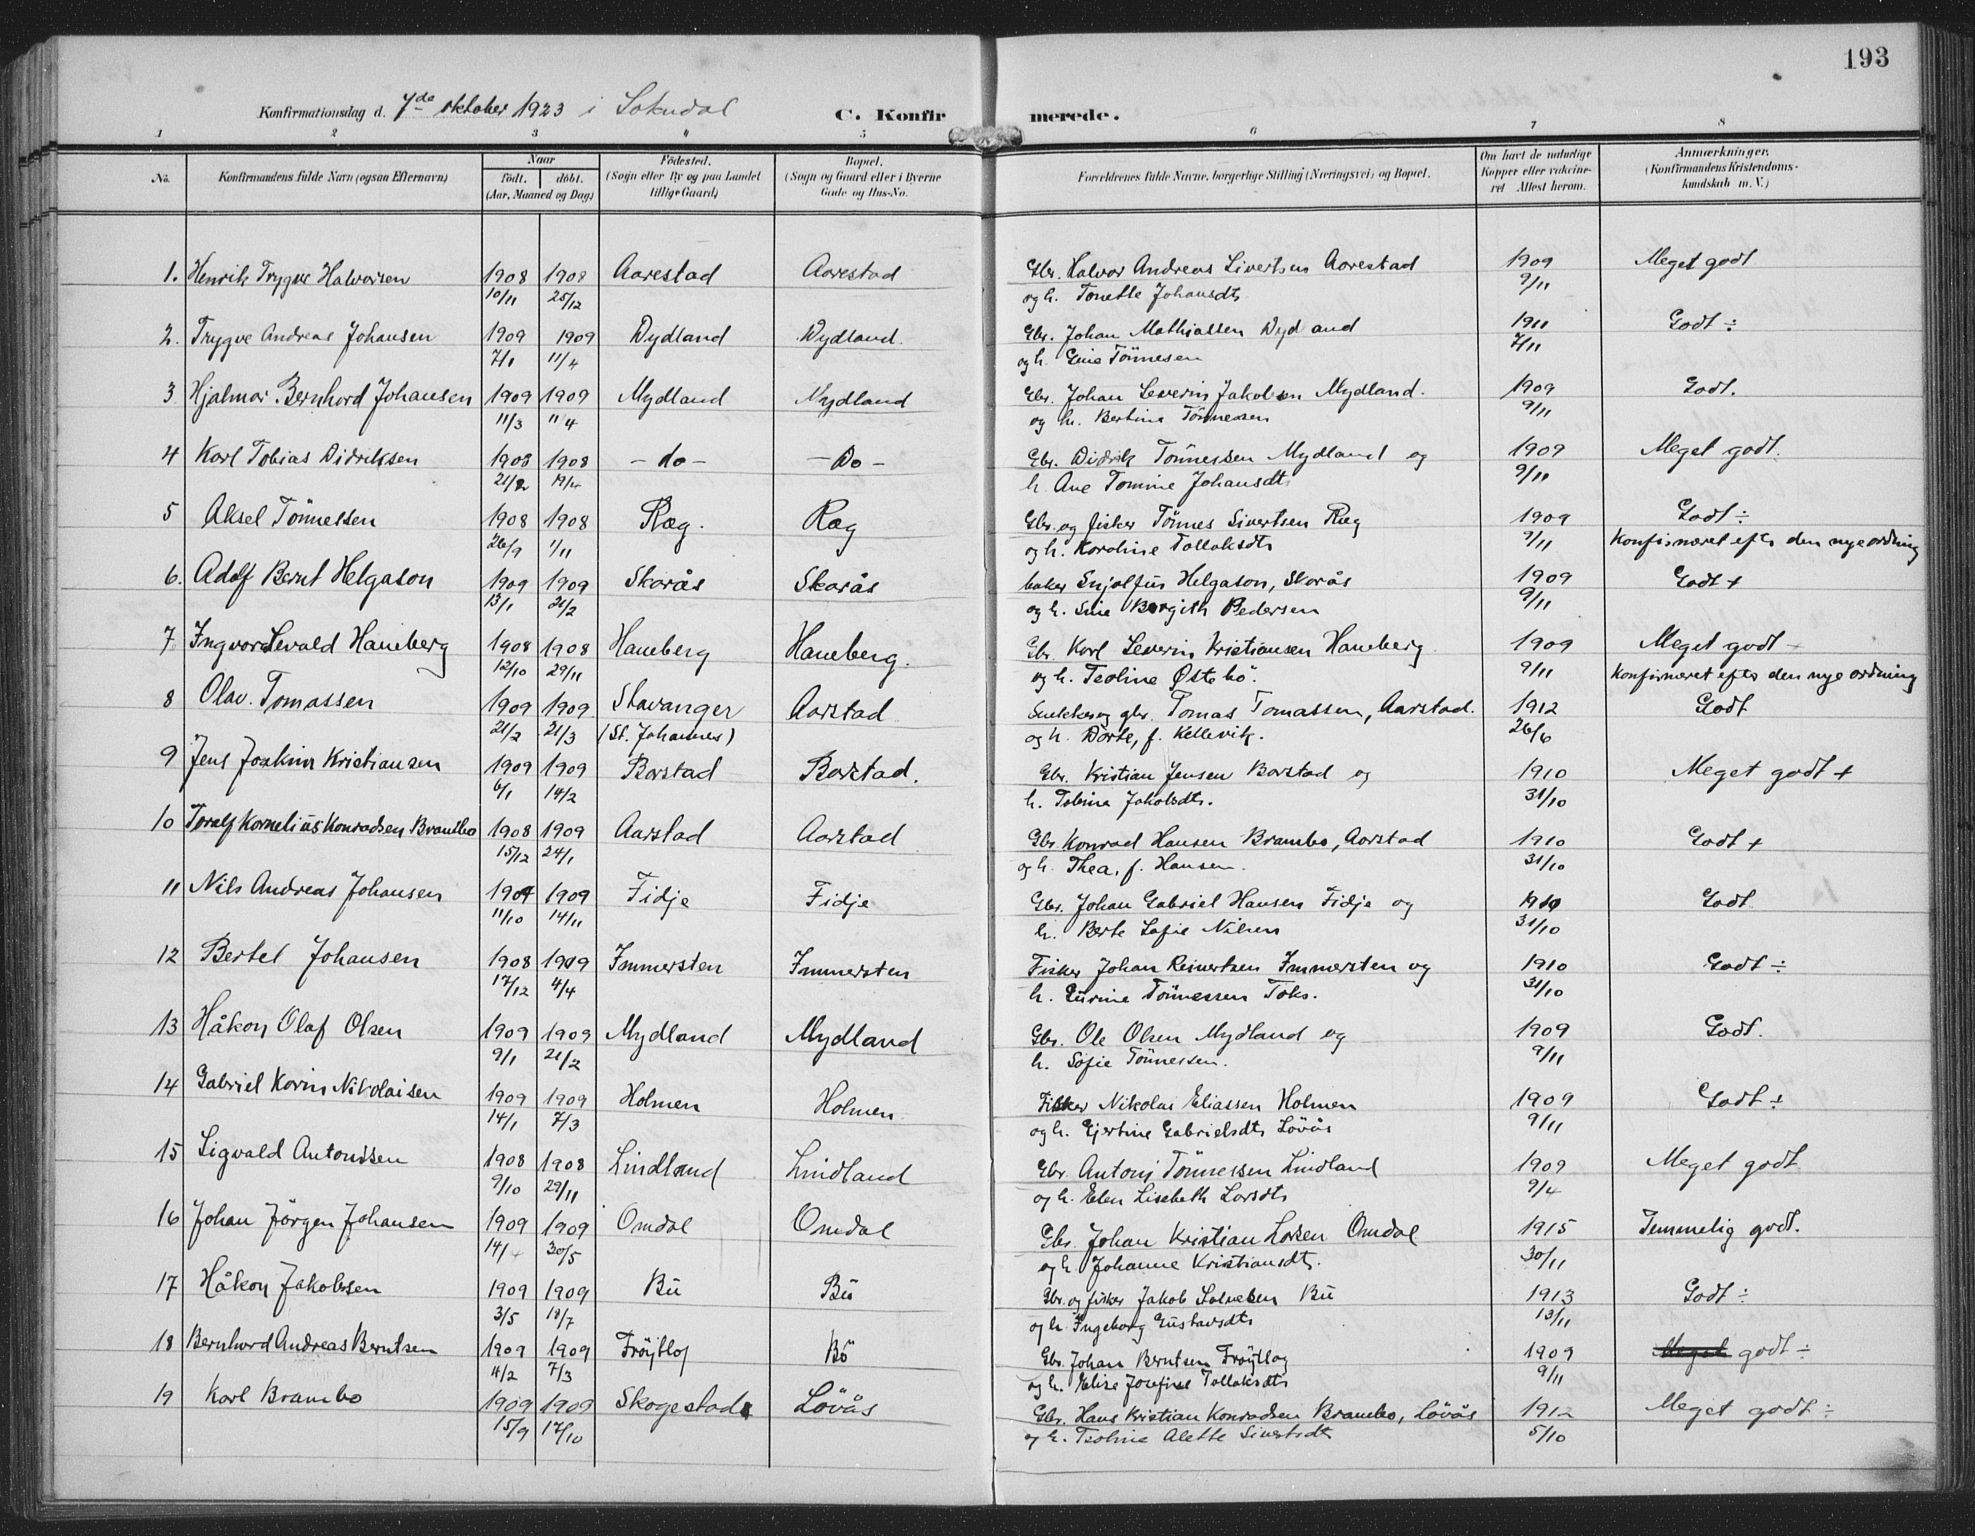 193
Konfirmationsdag d. 7de oktober 1923 i Sokndal C. Konfirmerede.
1 2 3 4 5 6 7 8
No. Konfirmandens fulde Navn (ogsaa Efternavn) Naar født. døbt. (Aar, Maaned og Dag) Fødested. (Sogn eller By og paa Landet tillige Gaard) Bopæl. (Sogn og Gaard eller i Byerne Gade og Hus-No. Forældrenes fulde Navne, borgerlige Stilling (Næringsvei) og Bopæl. Om havt de naturlige Kopper eller vakcineret Attest herom. Anmærkninger. (Konfirmandens Kristendomskundskab m. V.)
1. Henrik Trygve Halvorsen 1908 1908 Aarestad Aarestad Gbr. Halvor Andreas Sivertsen Aarestad 1909 Meget godt
10/11 25/12 og h. Tonette Johansdt. 9/11
2. Trygve Andreas Johansen 1909 1909 Dydland Dydland. Gbr. Johan Mathiassen Dydland 1911 Godt ÷
7/1 11/4 og h. Gine Tönnesen 7/11
3 Hjalmar Bernhard Johansen 1909 1909 Mydland Mydland Gbr. Johan Severin Jakobsen Mydland. 1909 Godt.
11/3 11/4 og h. Bertine Tönnessen 9/11
4 Karl Tobias Didriksen 1908 1908 - do - - Do - Gbr. Didrik Tönnessen Mydland og 1909 Meget godt.
21/2 19/4 h. Ane Tomine Johansdt. 9/11
5 Aksel Tönnessen 1908 1908 Ræg. Ræg Gbr. og fisker Tönnes Sivertsen Ræg 1909 Godt ÷
26/9 1/11 og h. Karoline Tollaksdt. 9/11 Konfirmeret efter den nye ordning
6. Adolf Bernt Helgason 1909 1909 Skarås Skarås baker Snjolfur Helgason, Skarås 1909 Godt +
13/1 21/2 og h. Sine Borgith Pedersen 9/11
7 Ingvar Sevald Haneberg 1908 1908 Haneberg Haneberg. Gbr. Karl Severin Kristiansen Haneberg 1909 Meget godt
12/10 29/11 og h. Teoline Østebö. 9/11 Konfirmeret efter den nye ordning
8 Olav Tomassen 1909 1909 Stavanger Aarstad Snekker og gbr. Tomas Tomassen, Aarstad. 1912 Godt
21/2 21/3 (St. Johannes) og h. Dorte, f. Kellevik. 26/6
9 Jens Joakim Kristiansen 1909 1909 Barstad Barstad. Gbr. Kristian Jensen Barstad og 1910 Meget godt +
6/1 14/2 h. Tobine Jakobsdt. 31/10
10 Toralf Kornelius Konradsen Brambo 1908 1909 Aarstad Aarstad Gbr. Konrad Hansen Brambo, Aarstad 1910 Godt +
15/12 24/1 og h. Thea, f. Hansen. 31/10
11 Nils Andreas Johansen 1909 Fidje Fidje Gbr. Johan Gabriel Hansen Fidje og 1910 Godt
11/10 14/11 h. Berte Sofie Nilsen 31/10
12 Bertel Johansen 1908 1909 Immersten Immersten Fisker Johan Reinertsen Immersten og 1910 Godt ÷
17/12 4/4 h. Gurine Tönnessen Toks. 31/10
13 Håkon Olaf Olsen 1909 1909 Mydland Mydland Gbr. Ole Olsen Mydland og 1909 Godt.
9/1 21/2 h. Sofie Tönnessen. 9/11
14 Gabriel Karin Nikolaisen 1909 1909 Holmen Holmen. Fisker Nikolai Eliassen Holmen 1909 Godt ÷
14/1 7/3 og h. Gjertine Gabrielsdt. Lövås 9/11
15 Sigvald Antonssen 1908 1908 Lindland Lindland Gbr. Anton Tönnessen Lindland 1909 Meget godt
9/10 29/11 og h. Elen Lisebeth Larsdt. 9/4
16 Johan Jörgen Johansen 1909 1909 Omdal Omdal Gbr. Johan Kristian Larsen Omdal 1915 Temmelig godt.
14/4 30/5 og h. Johanne Kristiansdt. 30/11
17 Håkon Jakobsen 1909 1909 Bü Bü Gbr. og fisker Jakob Salvesen Bü 1913 Godt ÷
3/5 18/7 og h. Ingeborg Gustavsdt. 13/11
18 Bernhard Andreas Berntsen 1909 1909 Fröytlog Bö Gbr. Johan Berntsen Fröytlog 1909 Meget godt ÷
4/2 7/3 og h. Elise Josefine Tollaksdt. 9/11
19 Karl Brambo 1909 1909 Skogestad Lövås Gbr. Hans Kristian Konradsen Brambo, Lövås 1912 Meget godt ÷
15/9 17/10 og h. Teoline Alette Sivertsdt. 5/10